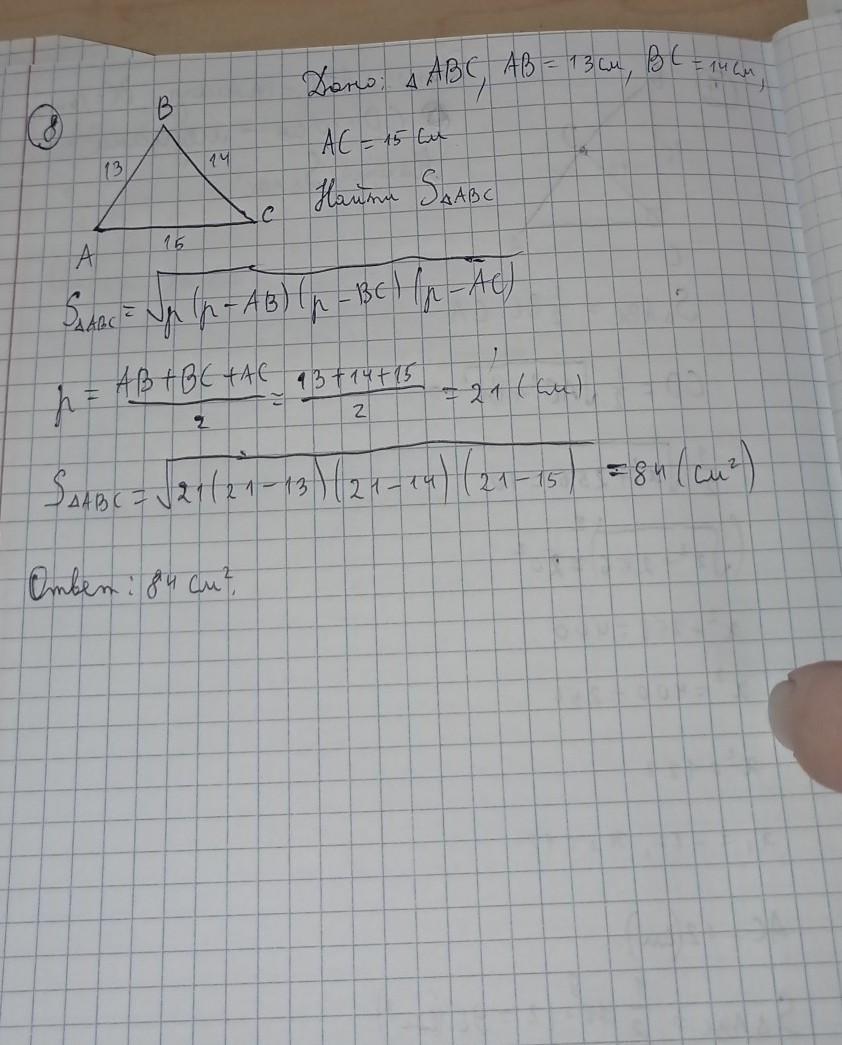 Дано: △ABC, AB = 13 см, BC = 14 см,
8
B
AC = 15 см
13
14
Найти S△ABC
C
A
15
S△ABC = √p(p-AB)(p-BC)(p-AC)
p = (AB+BC+AC)/2 = (13+14+15)/2 = 21 (см)
S△ABC = √21(21-13)(21-14)(21-15) = 84 (см²)
Ответ: 84 см².